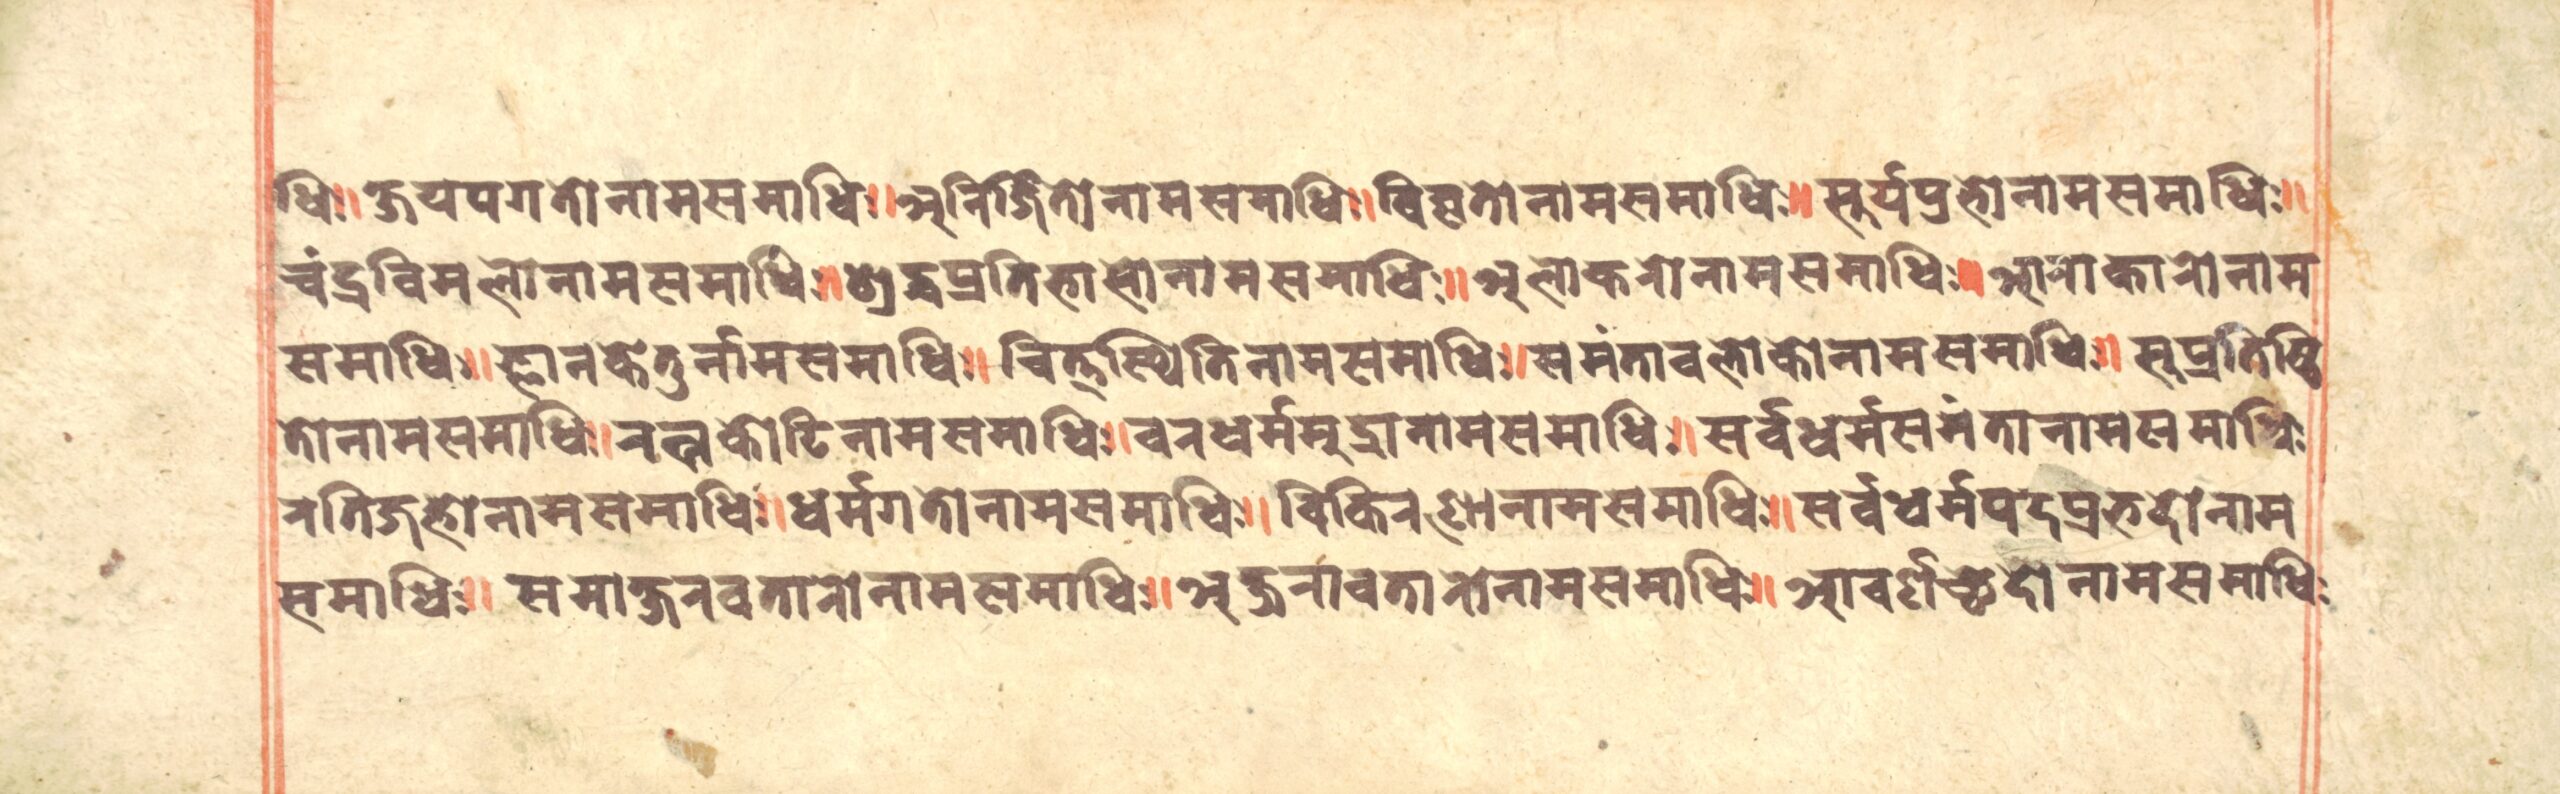 धिः॥ क्षयपगतोनामसमाधिः॥ अनिर्जितोनामसमाधिः॥ विवृतोनामसमाधिः॥ सूर्यप्रभोनामसमाधिः॥
चंद्रविमलोनामसमाधिः॥ शुद्धप्रतिभासोनामसमाधिः॥ अलोकरोनामसमाधिः॥ आराकारोनाम
समाधिः॥ ज्ञानकेतुर्नामसमाधिः॥ चित्तस्थितिनामसमाधिः॥ समंतावलोकोनामसमाधिः॥ सुप्रतिष्ठि
तोनामसमाधिः॥ रत्नकोटिनामसमाधिः॥ वरधर्ममुद्रानामसमाधिः॥ सर्वधर्मसमंतानामसमाधिः
रतिजहोनामसमाधिः॥ धर्मगतोनामसमाधिः॥ विकिरणोनामसमाधिः॥ सर्वधर्मपदप्रभदोनाम
समाधिः॥ समाक्षरवतारोनामसमाधिः॥ अक्षरावतारोनामसमाधिः॥ आवर्णच्छेदोनामसमाधिः